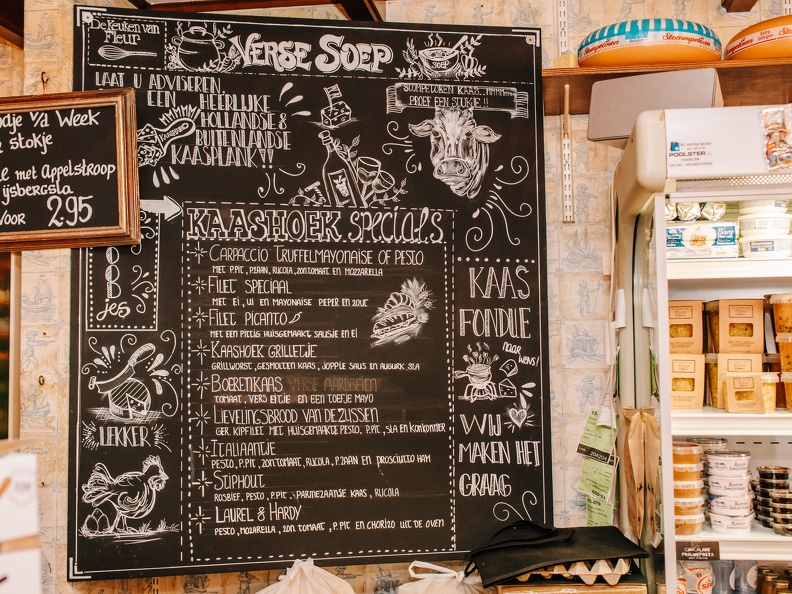 De Keuken van
Fleur
VERSE SOEP
SOEP
LAAT U ADVISEREN,
EEN HEERLIJKE
HOLLANDSJE &
BUITENLANDSE
KAASPLANK!!
STOMPETOREN KAAS...
PROEF EEN STUKJE!!
v/d Week
stokje
met Appelstroop
ijsbergsla
VOOR 2.95
KAASHOEK SPECIALS
CARPACCIO TRUFFELMAYONAISE OF PESTO
MET P.PIT, P.ZAAN, RUCOLA, ZON.TOMAAT EN MOZZARELLA
FILET SPECIAAL
MET EI, UI EN MAYONAISE PEPER EN ZOUT
FILET PICANTO
MET EEN PITTIG HUISGEMAAKT SAUSJE EN EI
KAASHOEK GRILLETJE
GRILLWORST, GESMOLTEN KAAS, JOPPIE SAUS EN AUGURK, SLA
BOERENKAAS VERSE AARDBEIEN
TOMAAT, VERS EITJE EN EEN TOEFJE MAYO
LIEVELINGSBROOD VAN DE ZUSSEN
GER. KIPFILET MET HUISGEMAAKTE PESTO, P.PIT, SLA EN KOMKOMMER
ITALIAANTJE
PESTO, P.PIT, ZON.TOMAAT, RUCOLA, P.ZAAN EN PROSCIUTTO HAM
STIPHOUT
ROSBIEF, PESTO, P.PIT, PARMEZAANSE KAAS, RUCOLA
LAUREL & HARDY
PESTO, MOZARELLA, ZON.TOMAAT, P.PIT EN CHORIZO UIT DE OVEN
jes
LEKKER
KAAS
FONDUE
NAAR WENS!
WIJ
MAKEN HET
GRAAG
Stompetoren
Stompetoren
POOLSTER
CHOCOLADE